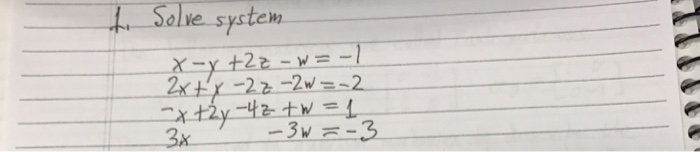 1. Solve system
x-y+2z-w=-1
2x+y-2z-2w=-2
-x+2y-4z+w=1
3x -3w=-3